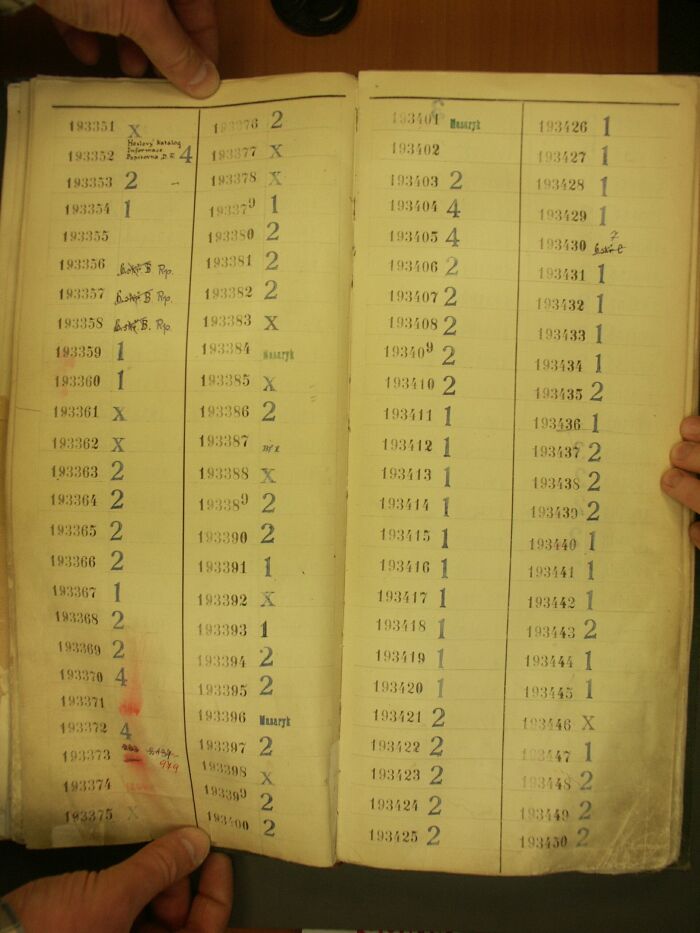 193351 X
193352 Heslový Katalog Informace Papírovna D.R. 4
193353 2
193354 1
193355
193356 B. Rp.
193357 B. Rp.
193358 B. Rp.
193359 1
193360 1
193361 X
193362 X
193363 2
193364 2
193365 2
193366 2
193367 1
193368 2
193369 2
193370 4
193371
193372 4
193373 979
193374
193375 X
193376 2
193377 X
193378 X
193379 1
193380 2
193381 2
193382 2
193383 X
193384 Masaryk
193385 X
193386 2
193387
193388 X
193389 2
193390 2
193391 1
193392 X
193393 1
193394 2
193395 2
193396 Masaryk
193397 2
193398 X
193399 2
193400 2
193401 Masaryk
193402
193403 2
193404 4
193405 4
193406 2
193407 2
193408 2
193409 2
193410 2
193411 1
193412 1
193413 1
193414 1
193415 1
193416 1
193417 1
193418 1
193419 1
193420 1
193421 2
193422 2
193423 2
193424 2
193425 2
193426 1
193427 1
193428 1
193429 1
193430 7
193431 1
193432 1
193433 1
193434 1
193435 2
193436 1
193437 2
193438 2
193439 2
193440 1
193441 1
193442 1
193443 2
193444 1
193445 1
193446 X
193447 1
193448 2
193449 2
193450 2